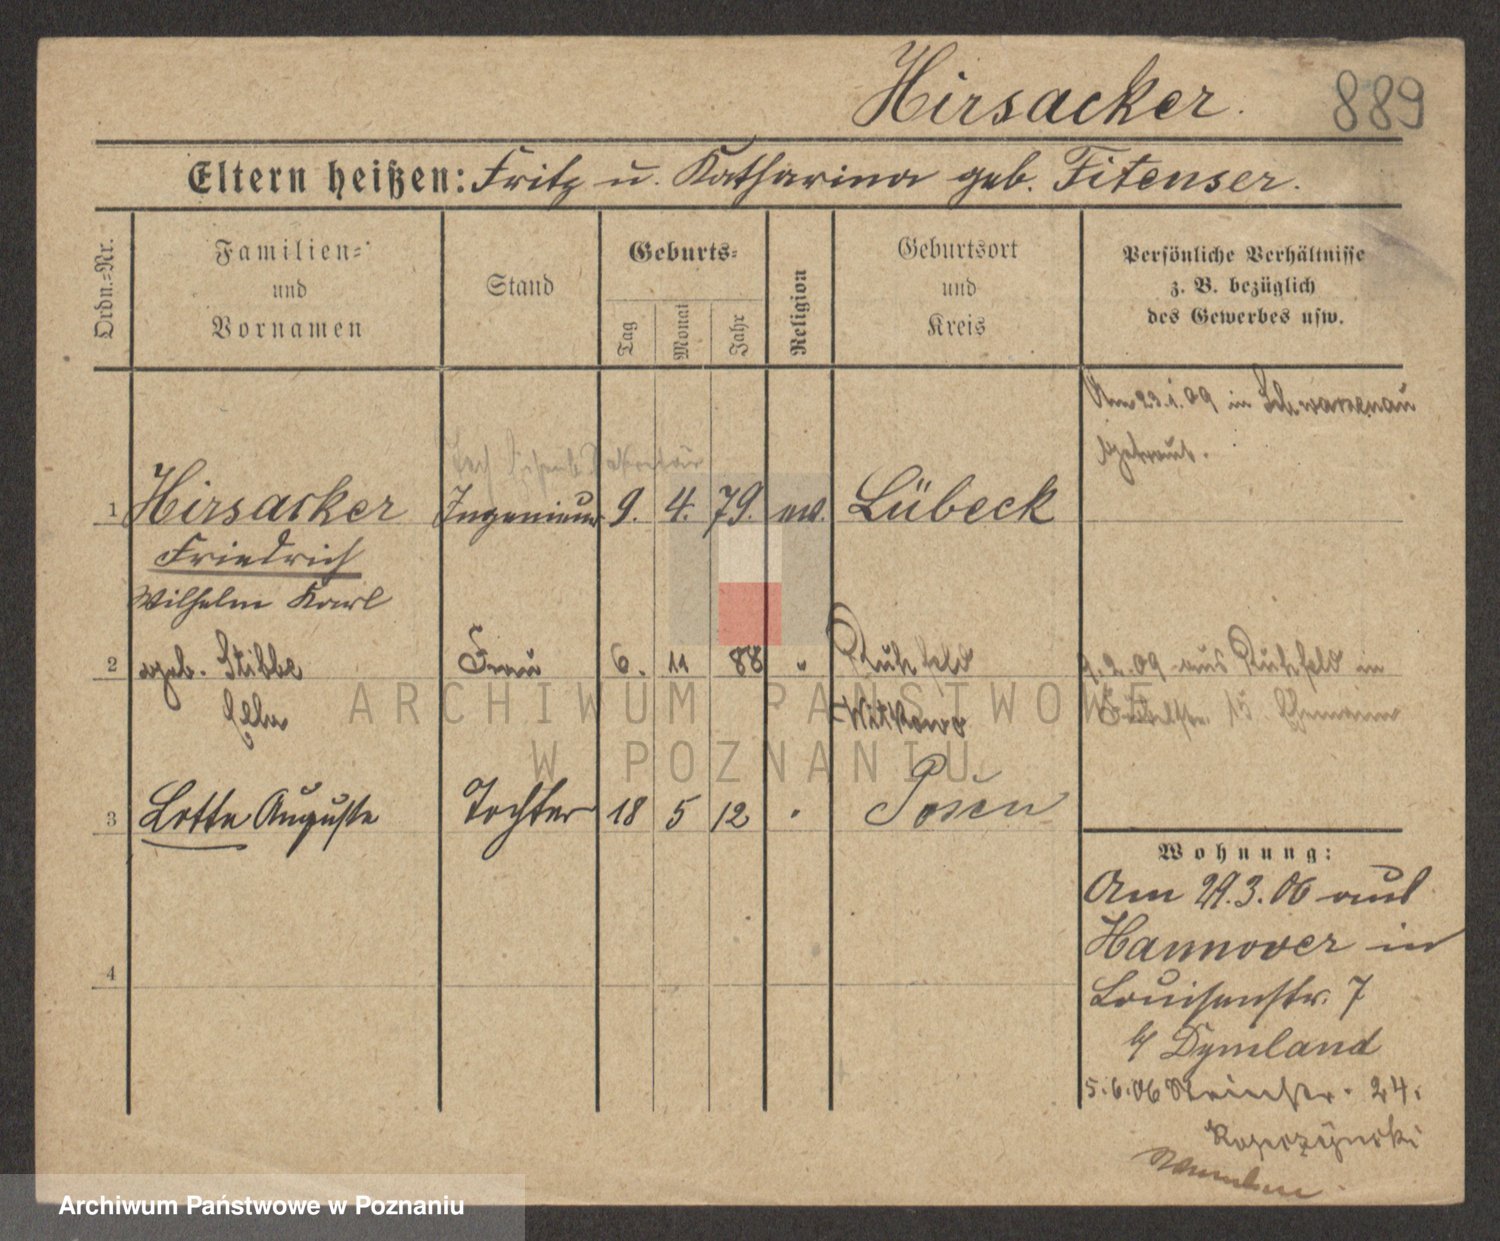 Hirsacker.
889
Eltern heißen: Fritz u. Katharina geb. Fitenser.
Ordn.-Nr.
Familien-
und
Vornamen
Stand
Geburts-
Tag
Monat
Jahr
Religion
Geburtsort
und
Kreis
Persönliche Verhältnisse
z. B. bezüglich
des Gewerbes usw.
Am 23.1.09 in Schwarzenau
getraut.
1 Hirsacker Ingenieur 9. 4. 79. ev. Lübeck
Friedrich
Wilhelm Karl
2 geb. Stibbe Frau 6. 11 88 " Ruhfeld
Ella Witkowo
9.2.09 aus Ruhfeld in
15
3 Lotte Auguste Tochter 18 5 12 " Posen
4
Wohnung:
Am 29.3.06 aus
Hannover in
Louisenstr. 7
b/ Dymland
5.6.06 24.
ARCHIWUM PAŃSTWOWE
W POZNANIU
Archiwum Państwowe w Poznaniu